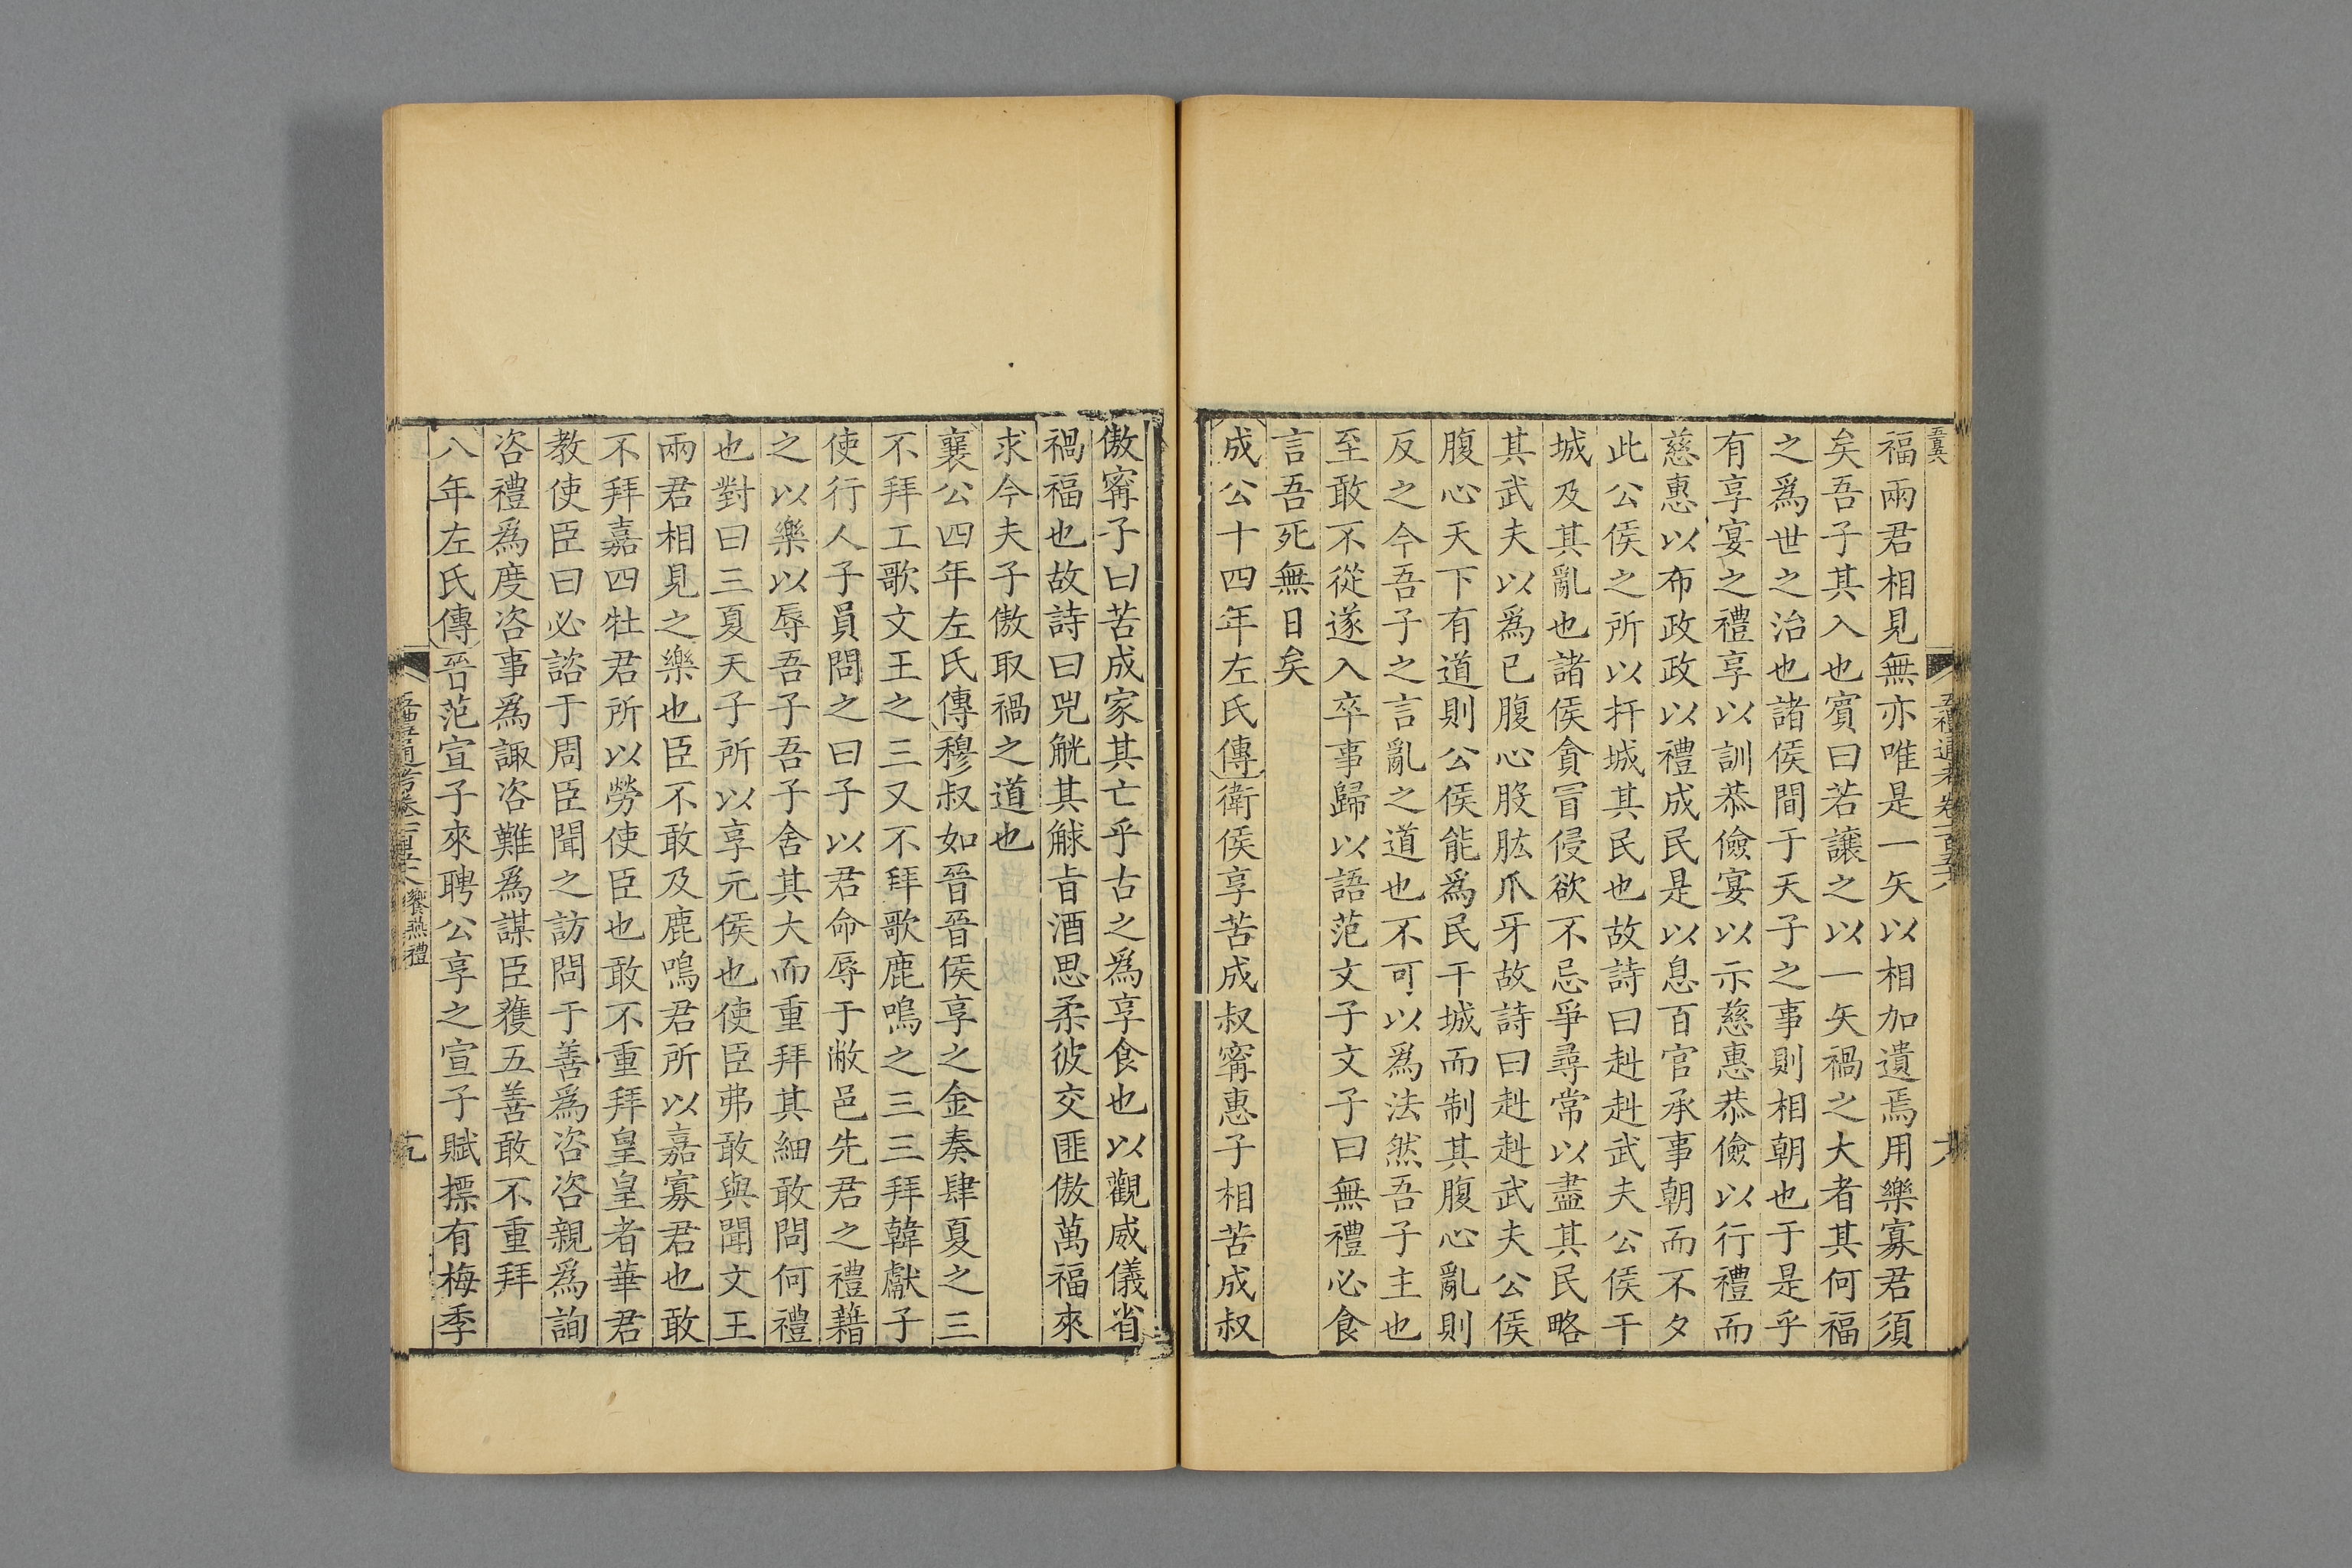 福兩君相見無亦唯是一矢以相加遺焉用樂寡君須
矣吾子其入也賓曰若讓之以一矢禍之大者其何福
之爲世之治也諸侯間于天子之事則相朝也于是乎
有享宴之禮享以訓恭儉宴以示慈惠恭儉以行禮而
慈惠以布政政以禮成民是以息百官承事朝而不夕
此公侯之所以扞城其民也故詩曰赳赳武夫公侯干
城及其亂也諸侯貪冒侵欲不忌爭尋常以盡其民略
其武夫以爲已腹心股肱爪牙故詩曰赳赳武夫公侯
腹心天下有道則公侯能爲民干城而制其腹心亂則
反之今吾子之言亂之道也不可以爲法然吾子主也
至敢不從遂入卒事歸以語范文子文子曰無禮必食
言吾死無日矣
成公十四年左氏傳衛侯享苦成叔寗惠子相苦成叔
傲寗子曰苦成家其亡乎古之爲享食也以觀威儀省
禍福也故詩曰兕觥其觩旨酒思柔彼交匪傲萬福來
求今夫子傲取禍之道也
襄公四年左氏傳穆叔如晉晉侯享之金奏肆夏之三
不拜工歌文王之三又不拜歌鹿鳴之三三拜韓獻子
使行人子員問之曰子以君命辱于敝邑先君之禮藉
之以樂以辱吾子吾子舍其大而重拜其細敢問何禮
也對曰三夏天子所以享元侯也使臣弗敢與聞文王
兩君相見之樂也臣不敢及鹿鳴君所以嘉寡君也敢
不拜嘉四牡君所以勞使臣也敢不重拜皇皇者華君
教使臣曰必諮于周臣聞之訪問于善爲咨咨親爲詢
咨禮爲度咨事爲諏咨難爲謀臣獲五善敢不重拜
八年左氏傳晉范宣子來聘公享之宣子賦摽有梅季
五禮通考卷一百五十八
饗燕禮